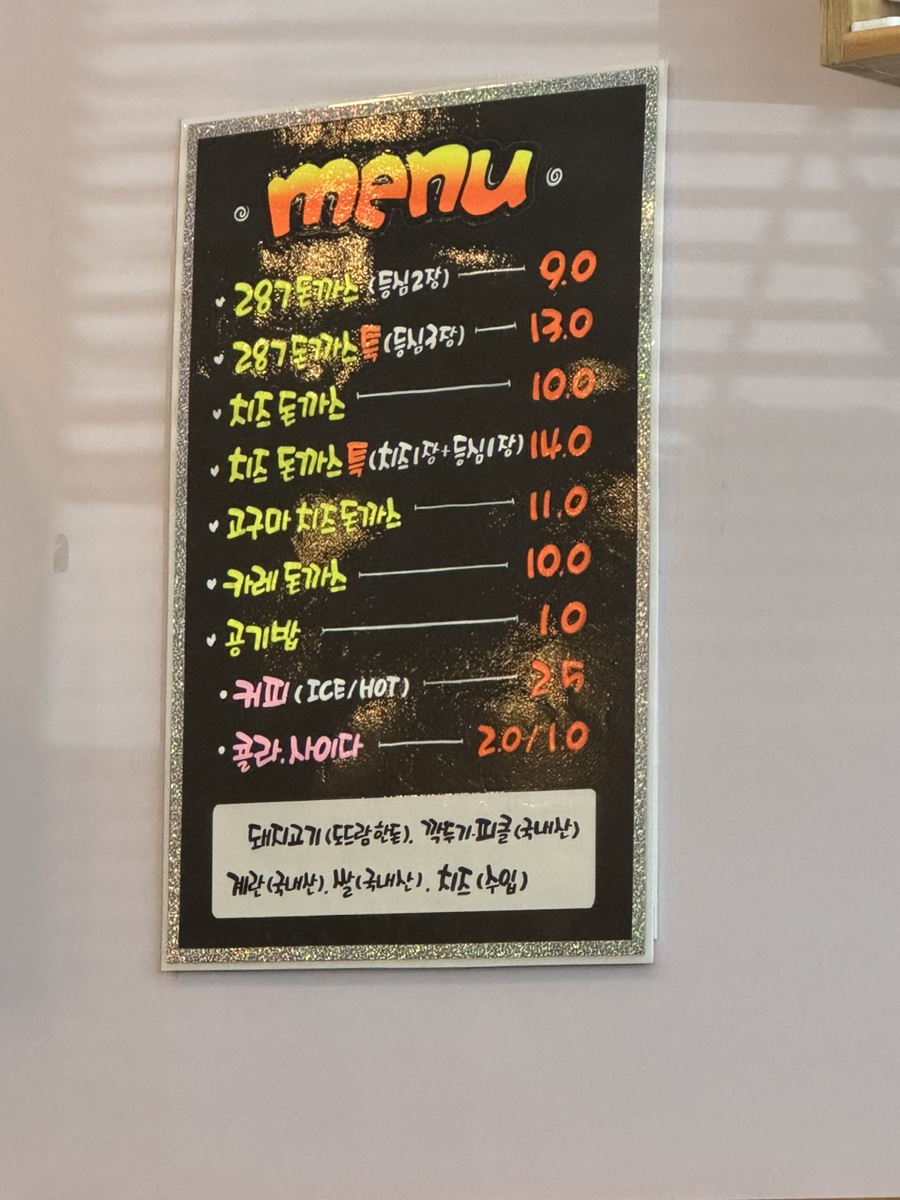 menu
287돈까스 (등심2장) 9.0
287돈까스 특 (등심3장) 13.0
치즈 돈까스 10.0
치즈 돈까스 특 (치즈1장+등심1장) 14.0
고구마 치즈돈까스 11.0
카레 돈까스 10.0
공기밥 1.0
커피 (ICE/HOT) 2.5
콜라.사이다 2.0/1.0
돼지고기(도드람한돈). 깍뚜기.피클(국내산)
계란(국내산). 쌀(국내산). 치즈(수입)